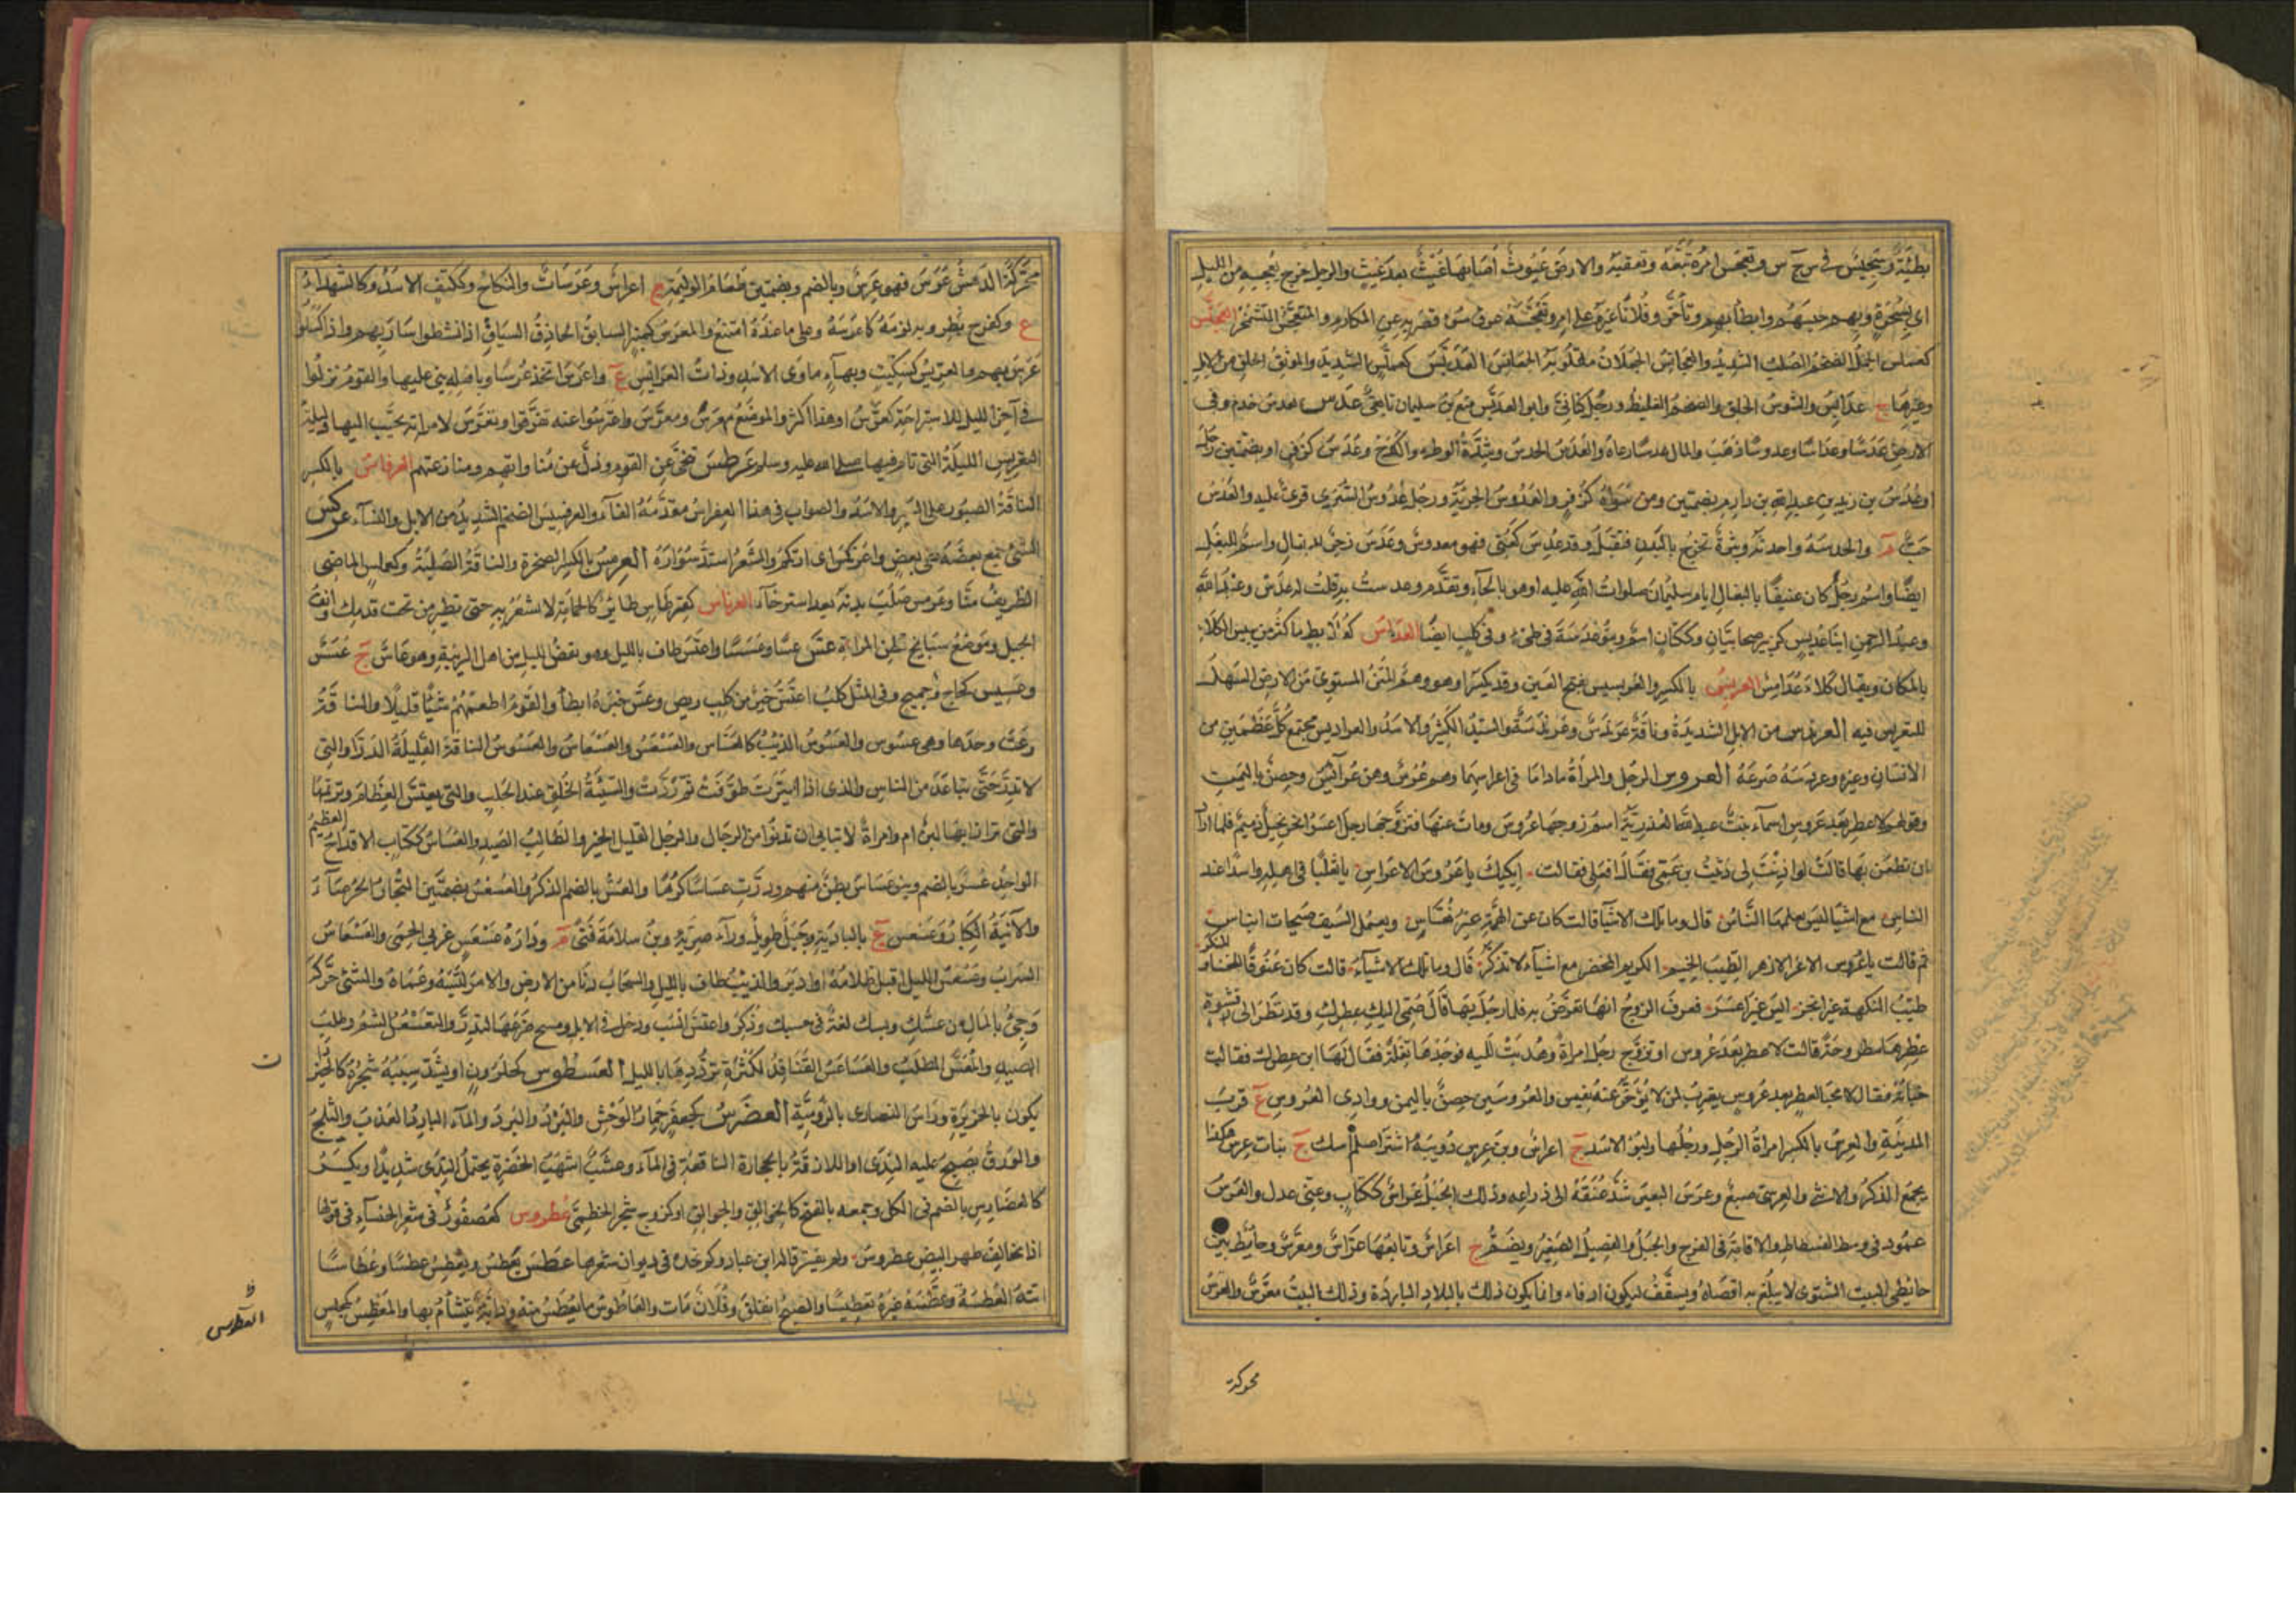 بطيئة وسجيس في س ج س وتعجس امره تتبعه وتعقبه والارض غيوث اصابها غيث بعد غيث والرجل خرج بعجسة من الليل
اى بسحرة وبهم حبسهم وابطأ بهم وتأخر وفلانا عيره على امر وتعجسه عرق سوء قصر به عن المكارم والمتعجس المتشمخر العجنس
كعملس الجمل الضخم الصلب الشديد والعجانس الجعلان مقلوبة الجعانس العدبس كعملس الشديد الموثق الخلق من الابل
وغيرها ج عدابس والشرس الخلق والضخم الغليظ ورجل كنانى وابو العدبس منيع بن سليمان تابعى عدس يعدس خدم وفى
الارض عدسا وعداسا وعدوسا ذهب والمال عدسا رعاه والعدس الحدس وشدة الوطء والكدح وعدس كزفر او بضمتين رجل
او عدس بن زيد بن عبد الله بن دارم بضمتين ومن سواه كزفر والعدوس الجريئة ورجل عدوس السرى قوى عليه والعدس
حب م والعدسة واحدته وبثرة تخرج بالبدن فتقتل وقد عدس كعنى فهو معدوس وعدس زجر للبغال واسم للبغل
ايضا واسم رجل كان عنيفا بالبغال ايام سليمان صلوات الله عليه او هو بالحاء وتقدم وعدست به قلت له عدس وعبد الله
وعبد الرحمن ابنا عديس كزبير صحابيان وككتان اسم وبنو عدسة فى طيئ وفى كلب ايضا العدامس كعلابط ما كثر من يبيس الكلاء
بالمكان ويقال كلاء عدامس العربس بالكسر والعربسيس بفتح العين وقد يكسر او هو وهم المتن المستوى من الارض السهل
للتعريس فيه العرندس من الابل الشديد وناقة عرندس وعرندسة والسيل الكثير والاسد والعراديس مجتمع كل عظمين من
الانسان وغيره وعردسه صرعه العروس الرجل والمرأة ماداما فى اعراسهما وهم عرس وهن عرائس وحصن باليمن
وقولهم لا عطر بعد عروس اسماء بنت عبد الله العذرية اسم زوجها عروس ومات عنها فتزوجها رجل اعسر ابخر بخيل دميم فلما اراد
ان يظعن بها قالت لو اذنت لى رثيت بن عمى فقال افعلى فقالت ابكيك يا عروس الاعراس يا ثعلبا فى اهله واسدا عند
الناس مع اشيا ليس يعلمها الناس قال وما تلك الاشيا قالت كان عن الهمة غير نعاس ويعمل السيف صبيحات الباس
ثم قالت يا عروس الاغر الازهر الطيب الخيم الكريم المحضر مع اشياء لا تذكر قال وما تلك الاشياء قالت كان عيوفا للخنا والمنكر
طيب النكهة غير ابخر ايسر غير اعسر فعرف الزوج انها تعرض به فلما رحل بها قال ضمى اليك عطرك وقد نظر الى قشوة
عطرها مطروحة قالت لا عطر بعد عروس او تزوج رجل امراة وهديت اليه فوجدها تفلة فقال لها اين عطرك فقالت
خباته فقال لا مخبأ لعطر بعد عروس يضرب لمن لا يؤخر عنه نفيس والعروسين حصن باليمن ووادى العروس ع قرب
المدينة والعرس بالكسر امراة الرجل ورجلها ولبوة الاسد ج اعراس وبن عرس دويبة اشتر اصلم اسك ج بنات عرس هكذا
يجمع الذكر والانثى والعرسى صبغ وعرس البعير شد عنقه الى ذراعه وذلك الحبل عراس ككتاب وعنى عدل والعرس
عمود فى وسط الفسطاط والاقامة فى الفرح والحبل والفصيل الصغير ويضم ج اعراس وبائعها عراس ومعرس وحائط بين
حائطى البيت الشتوى لا يبلغ به اقصاه ويسقف ليكون ادفاء وانما يكون ذلك بالبلاد الباردة وذلك البيت معرس والعرس
محركة
محركة الدهش عرس فهو عرس وبالضم وبضمتين طعام الوليمة ج اعراس وعرسات والنكاح وككتف الاسد وكالشهداء
ع وكفرح بطر وبه لزمه كاعرسه وعلى ما عنده امتنع والمعرس كمنبر السابق الحاذق السياق اذا نشطوا سار بهم واذا كسلوا
عرس بهم والعريس كسكيت وبهاء ماوى الاسد وذات العرائس ع واعرس اتخذ عرسا وباهله بنى عليها والقوم نزلوا
فى آخر الليل للاستراحة كعرسوا وهذا اكثر والموضع معرس ومعرس واعترسوا عنه تفرقوا وتعرس لامراته تحبب اليها وليلة
التعريس الليلة التى نام فيها صلى الله عليه وسلم عرطس تنحى عن القوم وذل عن مناواتهم ومنازعتهم العرفاس بالكسر
الناقة الصبور على السير والاسد والصواب فى هذا العفراس مقدمة الفاء والعرفسيس الضخم الشديد من الابل والنساء عركس
الشئ جمع بعضه على بعض واعرنكس اى ارتكم والشعر اشتد سواده العرمس بالكسر الصخرة والناقة الصلبة وكعملس الماضى
الظريف منا وعرمس صلب بدنه بعد استرخاء العرناس كقرطاس طائر كالحمامة لا تشعر به حتى يطير من تحت قدمك وانف
الجبل وموضع سبائخ قطن المراة عس عسا وعسسا واعتس طاف بالليل وهو نفض الليل عن اهل الريبة وهو عاس ج عسس
وعسيس كحاج وحجيج وفى المثل كلب اعتس خير من كلب ربض وعس خبره ابطأ والقوم اطعمهم شيئا قليلا والناقة
رعت وحدها وهى عسوس والعسوس الذئب كالعساس والعسعس والعسعاس والعسوس الناقة القليلة الدر او التى
لا تدر حتى تباعد من الناس والذى اذا اثيرت طوفت ثم درت والسيئة الخلق عند الحلب والتى تعتس العظام وترتمها
والتى تراز ابها لبن ام لا وامراة لا تبالى ان تدنو من الرجال والرجل القليل الخير والطالب الصيد والعساس ككتاب الاقداح العظيم
الواحد عس بالضم وبنو عساس بطن منهم ودرت عساسا كرها والعس بالضم الذكر والعسس بضمتين التجار الحرصاء
والآنية الكبار وعسعس ع بالبادية وجبل طويل وراء ضرية وبن سلامة فتى م ودارة عسعس غربى الحمى والعسعاس
السراب وعسعس الليل اقبل ظلامه او ادبر والذئب طاف بالليل والسحاب دنا من الارض والامر لبسه وعماه والشئ حركه
وجئ بالمال من عسك وبسك لغة فى حسك وذكر واعتس اكتسب ودخل فى الابل ومسح ضرعها لتدر والتعسعس الشم وطلب
الصيد والمعتس المطلب والعساعس القنافذ لكثرة ترددها بالليل العسطوس كحلزون او يشدد سينه شجرة كالخيزران
يكون بالجزيرة وراس النصارى بالرومية العضرس كجعفر حمار الوحش والبرد والبرد والماء البارد العذب والثلج
والورق يصبح عليه الندى او اللازقة بالحجارة الناقعة فى الماء وعشب اشهب الخضرة يحتمل الندى شديدا ويكسر
كالعضارس بالضم فى الكل وجمعه بالفتح كالجوالق والجوالق او كزبرج شجر الخطمى عطروس كعصفور فى شعر الخنساء فى قولها
اذا تخالف طهر البيض عطروس ولم يفسر قال ابن عباد وكم نجده فى ديوان شعرها عطس يعطس ويعطس عطسا وعطاسا
اتته العطسة وعطسه غيره تعطيسا والصبح انفلق وفلان مات والعاطوس ما يعطس منه ودابة يتشأم بها والمعطس كمجلس